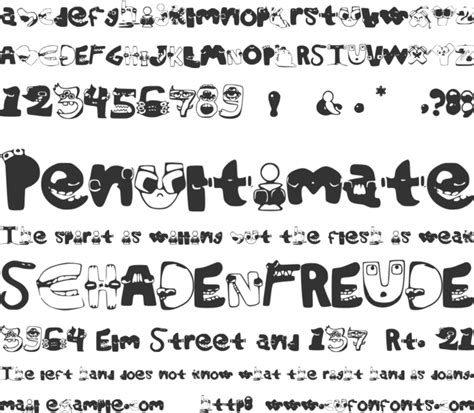 abcdefghijklmnopqrstuvwxyz
ABCDEFGHIJKLMNOPQRSTUVWXYZ
123456789 ! & . * ,?@
Penultimate
The spirit is willing but the flesh is weak
SCHADENFREUDE
3964 Elm Street and 137 Rt. 21
The left hand does not know what the right hand is doing
mail example.com http www.ofonfonts.com